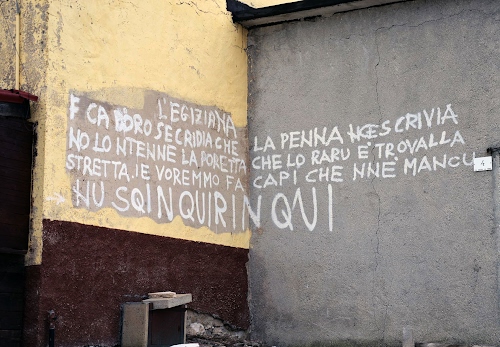 L'EGIZIANA
F CA DORO SE CRIDIA CHE LA PENNA NCES CRIVIA
NO LO NTENNE LA PORETTA CHE LO RARU È TROVALLA
STRETTA. IE VOREMMO FA CAPI CHE NNÈ MANCU
→ NU SQINQUIRINQUI
4